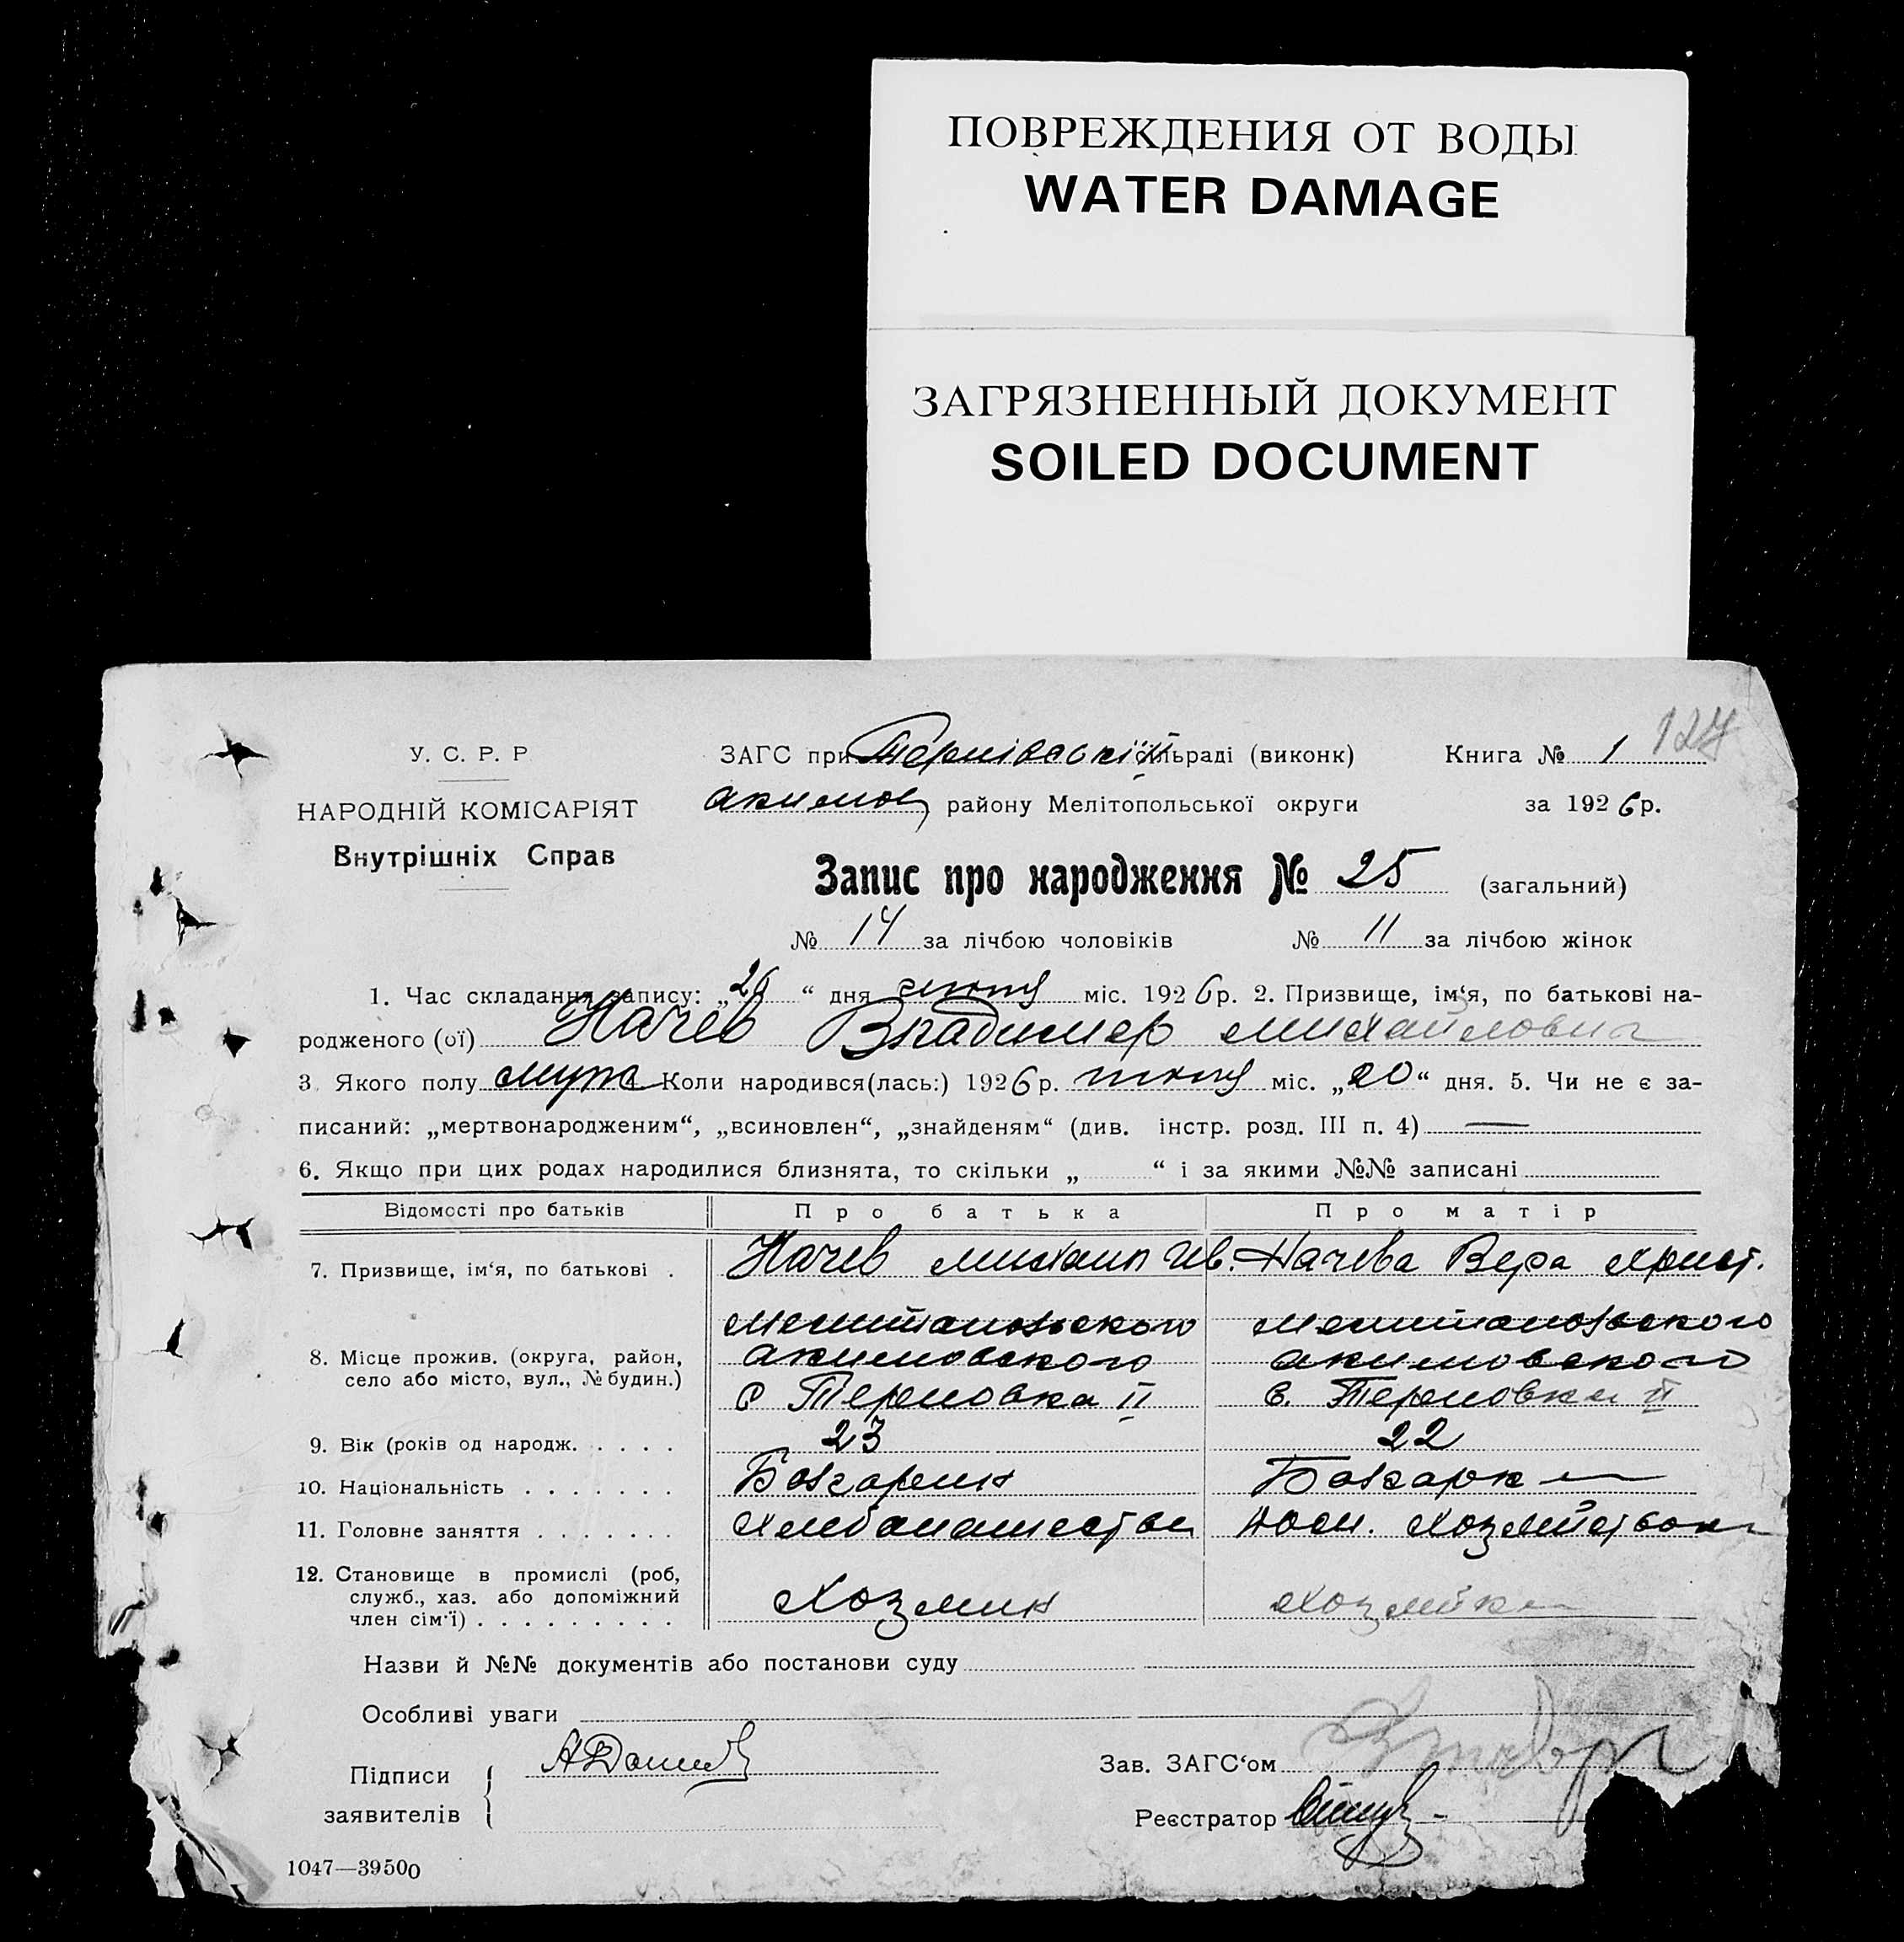 ПОВРЕЖДЕНИЯ ОТ ВОДЫ
WATER DAMAGE
ЗАГРЯЗНЕННЫЙ ДОКУМЕНТ
SOILED DOCUMENT
127
У. С. Р. Р
НАРОДНІЙ КОМІСАРІЯТ
Внутрішніх Справ
ЗАГС при Тернівській сільраді (виконк) Книга № 1
Акимов району Мелітопольської округи за 1926 р.
Запис про народження № 25 (загальний)
№ 14 за лічбою чоловіків № 11 за лічбою жінок
1. Час складання запису: „26“ дня міс. 1926 р. 2. Призвище, ім‘я, по батькові на-
родженого (ої) Начев Владимер Михайлович
3 Якого полу муж Коли народився(лась:) 1926 р. міс. „20“ дня. 5. Чи не є за-
писаний: „мертвонародженим“, „всиновлен“, „знайденям“ (див. інстр. розд. III п. 4) —
6. Якщо при цих родах народилися близнята, то скільки „ “ і за якими №№ записані
Відомості про батьків Про батька Про матір
7. Призвище, ім‘я, по батькові . Начев Михаил Ив. Начева Вера Христ.
8. Місце прожив. (округа, район,
село або місто, вул., № будин.)
Мелитопольского Мелитопольского
Акимовского Акимовского
с Терновка II с. Терновки II
9. Вік (років од народж. . . . . 23 22
10. Національність . . . . . . . Болгарин Болгарка
11. Головне заняття . . . . . . . Хлебопашество Дом. хозяйством
12. Становище в промислі (роб,
служб., хаз. або допоміжний
член сім‘ї) . . . . . . . . . Хозяин Хозяйка
Назви й №№ документів або постанови суду
Особливі уваги
Підписи
заявителів
Зав. ЗАГС‘ом
Реєстратор
1047—39500